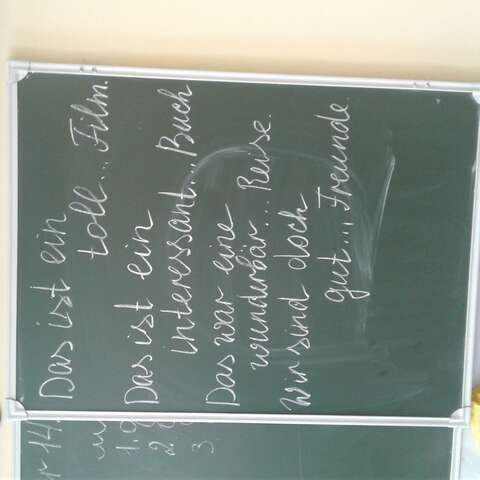 Das ist ein
toll... Film.
Das ist ein
interessant... Buch
Das war eine
wunderbär... Reise.
Wir sind doch
gut... Freunde.
r 14.
1.
2.
3